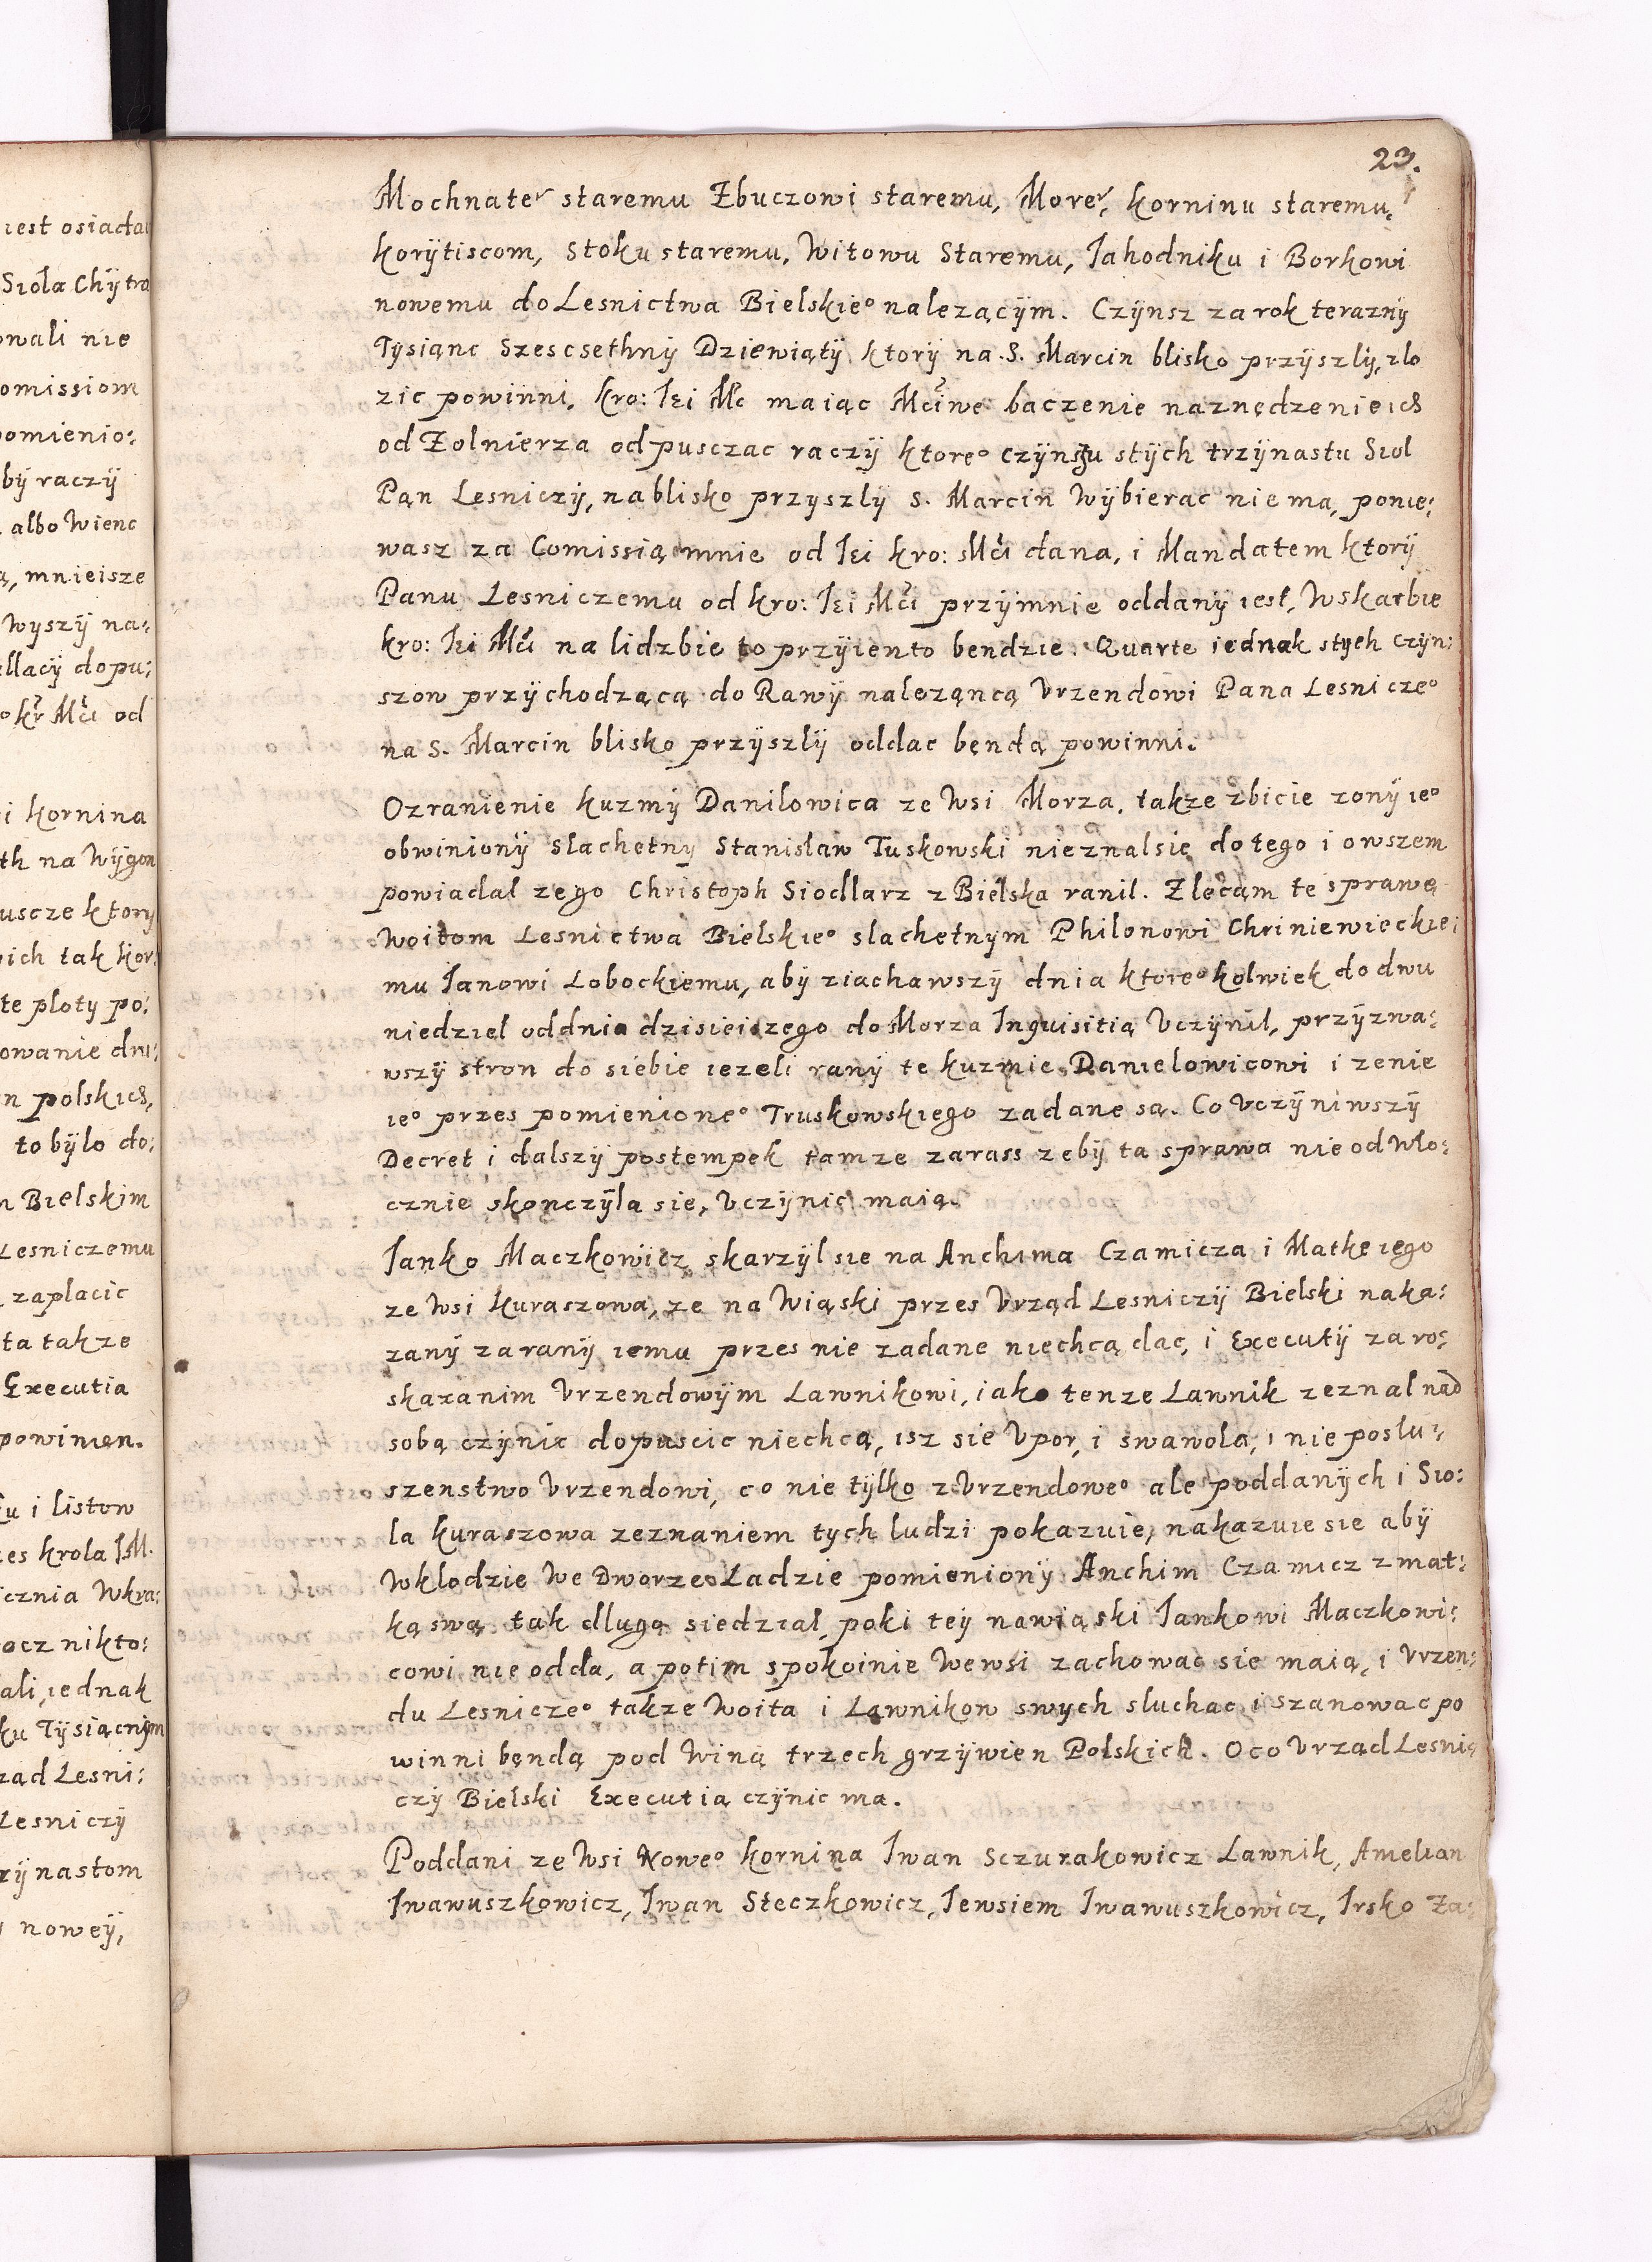 iest osiadał
Sioła Chÿtra
owali nie
omissiom
pomienio:
bÿ raczÿ
albo Wienc
ą, mnieisze
Wyszÿ na:
ellacÿ dopu:
kr Mći od
i Kornina
th na Wÿgon
uscze ktorÿ
ich tak kor:
te ploty po:
owanie dru:
n polskich,
to bÿlo do:
n Bielskim
Lesniczemu
zaplacic
ta takze
Executia
powinien.
u i listow
es krola JM.
icznia Wkra:
ocz nikto:
ali, iednak
ku Tÿsiącnÿm
ząd Lesni:
Lesniczÿ
rzÿnastom
noweÿ,
23.
Mochnateͬ staremu Zbuczowi staremu, Moreͬ, Korninu staremu,
Korÿtiscom, Stoku staremu, Witowu Staremu, Jahodniku i Borkowi
nowemu do Lesnictwa Bielskie° nalezącÿm. Czÿnsz za rok teraznÿ
Tÿsiąnc Szescsethnÿ Dziewiątÿ ktorÿ na. S. Marcin blisko przÿszlÿ, zlo
zic powinni, Kro: Jei Mć maiąc Mćiwe baczenie na znędzenie ich
od Zolnierza odpusczac raczÿ ktore° czÿnszu stÿch trzÿnastu Siol
Pąn Lesniczÿ, nablisko przyszlÿ S. Marcin Wÿbierac nie ma, ponie:
wasz za Comissią mnie od Jei Kro: Mći dana, i Mandatem ktorÿ
Panu Lesniczemu od Kro: Jei Mći przÿmnie oddanÿ iest, Wskarbie
Kro: Jei Mći na lidzbie to przÿiento bendzie. Quarte iednak stych czÿn:
szow przÿchodzącą do Rawÿ nalezącą Vrzendowi Pana Lesnicze°
na S. Marcin blisko przÿszlÿ oddac będą powinni.
Ozranienie Kuzmÿ Danilowica ze Wsi Morza, takze zbicie zonÿ ie°
obwinionÿ slachetnÿ Stanislaw Tuskowski nieznal sie do tego i owszem
powiadal zego Christoph Siodlarz z Bielska ranil. Zlecam te sprawę
Woitom Lesnictwa Bielskie° slachetnÿm Philonowi Chriniewieckie:
mu Janowi Lobockiemu, abÿ ziachawszÿ dnia ktore° kolwiek do dwu
niedziel oddnia dzisieiszego do Morza Inquisitią Vczÿnil, przÿzwa:
wszÿ stron do siebie iezeli ranÿ te Kuzmie Danielowicowi i zenie
ie° przes pomienione° Truskowskiego zadane są. Co Vczÿniwszÿ
Decret i dalszÿ postempek tamze zarass zebÿ ta sprawa nie odwło:
cznie skonczÿla sie, Vczÿnic maią.
Janko Maczkowicz skarzÿl sie na Anchima Czamicza i Matke iego
ze Wsi Kuraszowa, ze na Wiąski przes Vrząd Lesniczÿ Bielski naka:
zanÿ za ranÿ iemu przes nie zadane niechcą dac, i Executÿ za ro:
skazanim Vrzendowÿm Lawnikowi, iako tenze Lawnik zeznal nad
sobą czÿnic dopuscic niechcą, isz sie Vpor, i swawola, i nie poslu:
szenstwo Vrzendowi, co nie tÿlko z Vrzendowe° ale poddanÿch i Sio:
la Kuraszowa zeznaniem tych ludzi pokazuie, nakazuie sie abÿ
Wklodzie We Dworze Ladzie pomienionÿ Anchim Czamicz z mat:
ką swą tak dlugo siedzial, poki tey nawiąski Jankowi Maczkowi:
cowi nie odda, a potim spokoinie Wewsi zachowac sie maią, i Vrzen:
du Lesnicze° takze Woita i Lawnikow swych sluchac i szanowac po
winni będą pod Winą trzech grzÿwien Polskich. Oco Vrząd Lesni
czÿ Bielski Executia czÿnic ma.
Poddani ze Wsi Nowe° Kornina Iwan Sczurakowicz Lawnik, Amelian
Iwawuszkowicz, Iwan Steczkowicz, Jewsiem Iwanuszkowicz, Irsko Za: